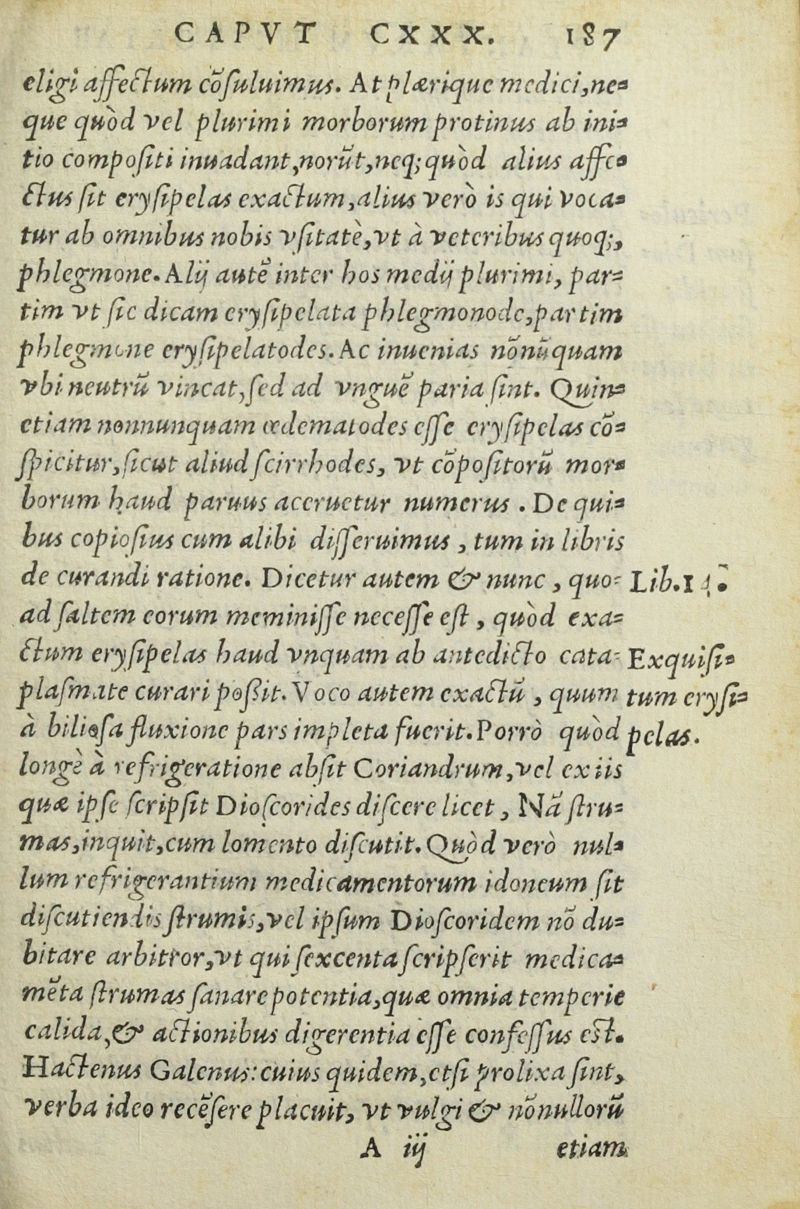 CAPVT CXXX. 187
eligi affectum cõsuluimus. At plærique medici,ne=
que quòd vel plurimi morborum protinus ab ini=
tio compositi inuadant,norũt,neq; quòd alius affe=
ctus sit erysipelas exactum,alius verò is qui voca=
tur ab omnibus nobis vsitatè,vt à veteribus quoq;,
phlegmone. Alij autẽ inter hos medij plurimi, par=
tim vt sic dicam erysipelata phlegmonode,partim
phlegmone erysipelatodes. Ac inuenias nõnũquam
vbi neutrũ vincat,sed ad vnguẽ paria sint. Quin=
etiam nonnunquam œdematodes esse erysipelas cõ=
spicitur,sicut aliud scirrhodes, vt cõpositorũ mor=
borum haud paruus acceruetur numerus . De qui=
bus copiosius cum alibi disseruimus , tum in libris
de curandi ratione. Dicetur autem & nunc , quo= Lib.14.
ad saltem eorum meminisse necesse est , quòd exa=
ctum erysipelas haud vnquam ab antedicto cata= Exquisi=
plasmate curari possit. Voco autem exactũ , quum tum erysi=
à biliosa fluxione pars impleta fuerit. Porrò quòd pelas.
longè à refrigeratione absit Coriandrum,vel ex iis
quæ ipse scripsit Dioscorides discere licet , Nã stru=
mas,inquit,cum lomento discutit. Quòd verò nul=
lum refrigerantium medicamentorum idoneum sit
discutiendis strumis,vel ipsum Dioscoridem nõ du=
bitare arbitror,vt qui sexcenta scripserit medica=
mẽta strumas sanare potentia,quæ omnia temperie
calida,& actionibus digerentia esse confessus est.
Hactenus Galenus: cuius quidem,etsi prolixa sint,
verba ideo recẽsere placuit, vt vulgi & nõnullorũ
A iij etiam